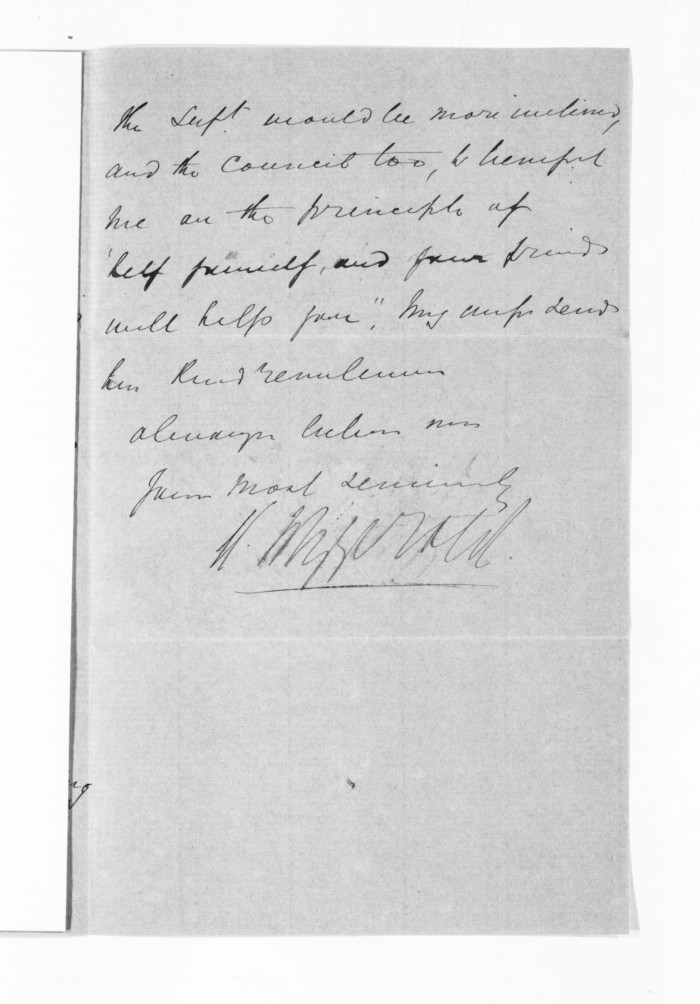 the Supt. would be more inclined,
and the Council too, to benefit
me on the principle of
"help yourself, and your friends
will help you". My wife sends
her kind remembrances
always believe me
yours most sincerely
H. Fitzgerald.